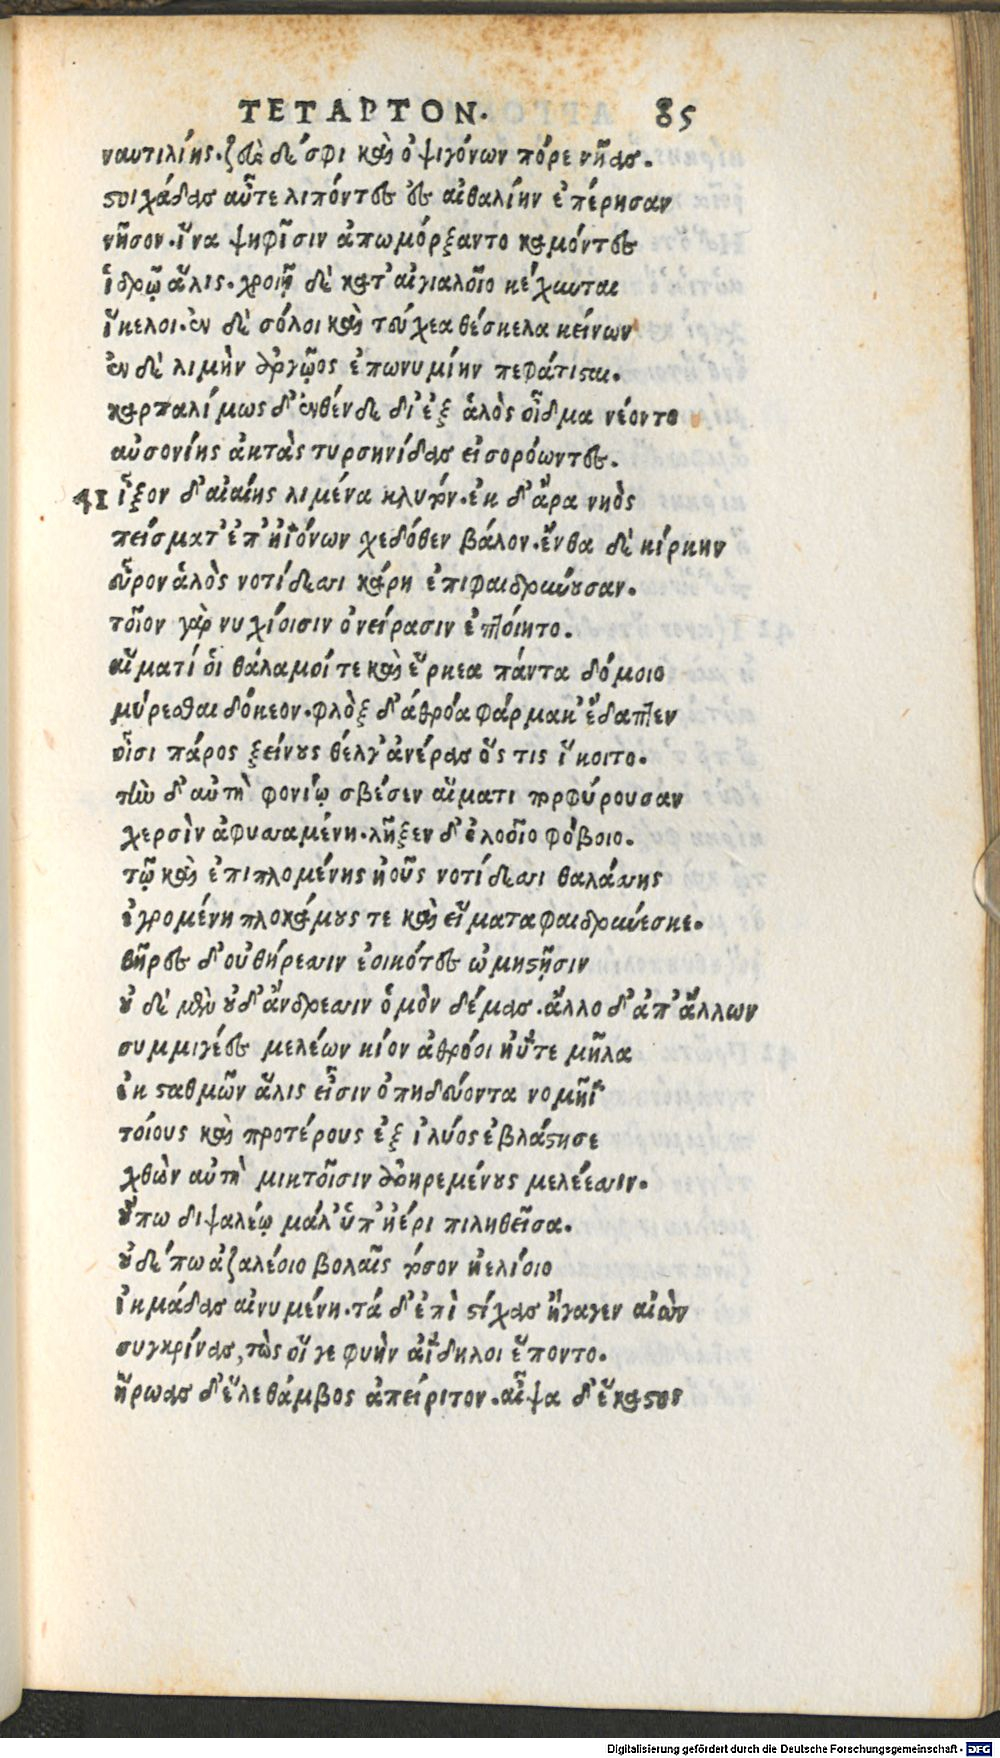 ΤΕΤΑΡΤΟΝ. 85
ναυτιλίης. ζεὺς δέ σφι καὶ ὀψιγόνων πόρε νῆας.
στοιχάδας αὖτε λιπόντες ἐς αἰθαλίην ἐπέρησαν
νῆσον. ἵνα ψηφῖσιν ἀπωμόρξαντο καμόντες
ἱδρῷ ἅλις. χροιῇ δὲ κατ' αἰγιαλοῖο κέχυνται
ἴκελοι. ἐν δὲ σόλοι καὶ τεύχεα θέσκελα κείνων
ἐν δὲ λιμὴν ἀργῷος ἐπωνυμίην πεφάτισται.
καρπαλίμως δ' ἐνθένδε δι' ἐξ ἁλὸς οἶδμα νέοντο
αὐσονίης ἀκτὰς τυρσηνίδας εἰσορόωντες.
41 ἷξον δ' αἰαίης λιμένα κλυτόν. ἐκ δ' ἄρα νηὸς
πείσματ' ἐπ' ἠϊόνων χεδόθεν βάλον. ἔνθα δὲ κίρκην
εὗρον ἁλὸς νοτίδεσσι κάρη ἐπιφαιδρύνουσαν.
τοῖον γὰρ νυχίοισιν ὀνείρασιν ἐπτοίητο.
αἵματί οἱ θάλαμοί τε καὶ ἕρκεα πάντα δόμοιο
μύρεσθαι δόκεον. φλὸξ δ' ἀθρόα φάρμακ' ἔδαπτεν
οἷσι πάρος ξείνους θέλγ' ἀνέρας ὅς τις ἵκοιτο.
τὴν δ' αὐτὴ φονίῳ σβέσεν αἵματι πορφύρουσαν
χερσὶν ἀφυσσαμένη. λῆξεν δ' ὀλοοῖο φόβοιο.
τῷ καὶ ἐπιπλομένης ἠοῦς νοτίδεσσι θαλάσσης
ἐγρομένη πλοκάμους τε καὶ εἵματα φαιδρύνεσκε.
θῆρες δ' οὐ θήρεσσιν ἐοικότες ὠμηστῇσιν
οὐ δὲ μὲν οὐδ' ἄνδρεσσιν ὁμὸν δέμας. ἄλλο δ' ἀπ' ἄλλων
συμμιγέες μελέων κίον ἀθρόοι ἠΰτε μῆλα
ἐκ σταθμῶν ἅλις εἶσιν ὀπηδεύοντα νομῆϊ
τοίους καὶ προτέρους ἐξ ἰλύος ἐβλάστησε
χθὼν αὐτὴ μικτοῖσιν ἀρηρεμένους μελέεσσιν.
οὔπω διψαλέῳ μάλ' ὑπ' ἠέρι πιληθεῖσα.
οὐδέ πω ἀζαλέοιο βολαῖς τόσον ἠελίοιο
ἰκμάδας αἰνυμένη. τά δ' ἐπὶ στίχας ἤγαγεν αἰὼν
συγκρίνας, τὼς οἵ γε φυὴν ἀΐδηλοι ἕποντο.
ἥρωας δ' ἕλε θάμβος ἀπείριτον. αἶψα δ' ἕκαστος
Digitalisierung gefördert durch die Deutsche Forschungsgemeinschaft - DFG